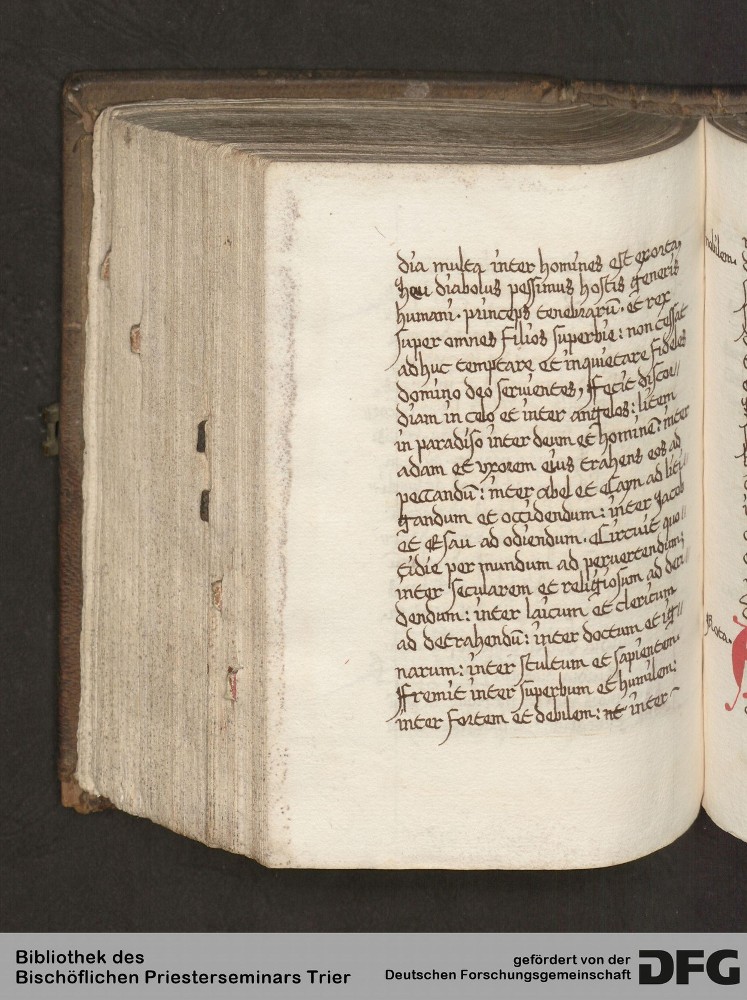 dia multa inter homines est exorta,
heu diabolus pessimus hostis generis
humani. princeps tenebrarū. et rex
super omnes filios superbie: non cessat
ad huc temptare et inquietare fideles
domino deo seruientes, Fecit discor//
diam in celo et inter angelos: litem
in paradiso inter deum et hominē: inter
adam et vxorem eius trahens eos ad
peccandū: inter abel et Cayn ad liti//
gandum et occidendum: inter Jacob
et Esau ad odiendum. Circuit quo//
tidie per mundum ad peruertendum:
inter secularem et religiosum ad deri//
dendum: inter laicum et clericum
ad detrahendū: inter doctum et ig//
narum: inter stultum et sapientem.
Fremit inter superbum et humilem:
inter fortem et debilem: et inter
nobilem.
Nota.
Bibliothek des
Bischöflichen Priesterseminars Trier
gefördert von der
Deutschen Forschungsgemeinschaft
DFG